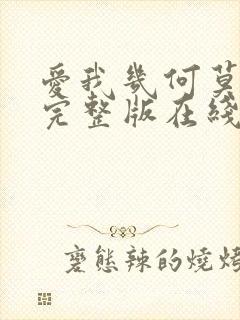 愛我幾何莫
完整版在綫
變態辣的燒烤